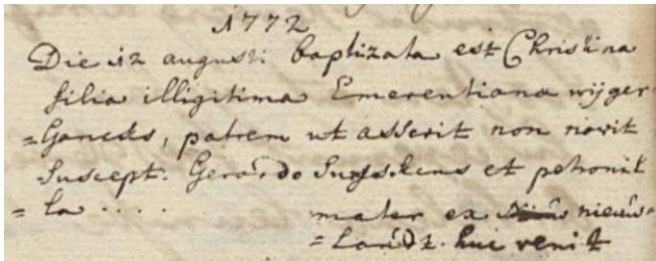 1772
Die 12 augusti baptizata est Christina
filia illigitima Emerentiana wijger
=Gancks, patrem ut asserit non novit
Suscept. Gerardo Suyskens et petronil
=la ....
mater ex nieuw=
=Landt. huc venit